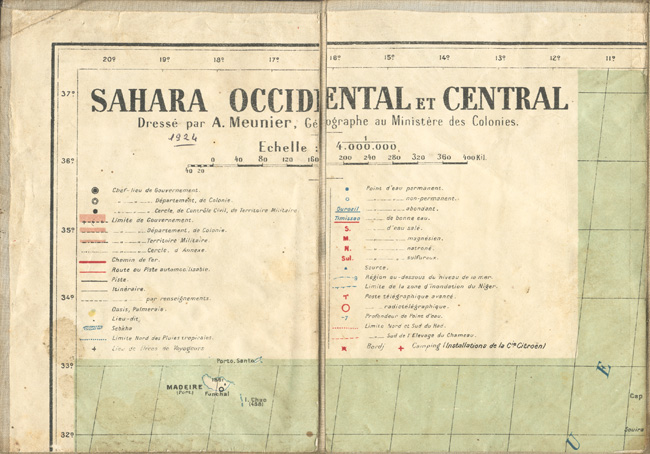 20º 19º 18º 17º 16º 15º 14º 13º 12º 11º
37º
SAHARA OCCIDENTAL ET CENTRAL
Dressé par A. Meunier, Géographe au Ministère des Colonies.
1924
Echelle : 1
4.000.000
36º
40 20 0 40 80 120 160 200 240 280 320 360 400 Kil.
Chef-lieu de Gouvernement.
Département, de Colonie.
Cercle, de Contrôle Civil, de Territoire Militaire
Limite de Gouvernement.
Département, de Colonie.
Territoire Militaire.
Cercle, d'Annexe.
Chemin de fer.
Route ou Piste automobilisable.
Piste.
Itinéraire.
par renseignements.
Oasis, Palmeraie.
Lieu-dit.
Sebkha
Limite Nord des Pluies tropicales.
Lieu de Décès de Voyageurs
35º
34º
33º
32º
Points d'eau permanent.
non-permanent.
Ourseil abondant.
Timissao de bonne eau.
S. d'eau salé.
M. magnésien.
N. natroné.
Sul. sulfureux.
Source.
Région au-dessous du niveau de la mer.
Limite de la zone d'inondation du Niger.
Poste télégraphique avancé.
radiotélégraphique.
Profondeur de Points d'eau.
Limite Nord et Sud du Nad.
Sud de l'Elevage du Chameau.
Bordj Camping (Installations de la Cie Citroën)
Porto Santo
MADEIRE
(Port.)
Funchal
E
U
Cap